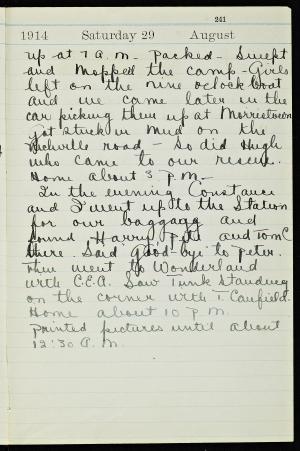 241
1914 Saturday 29 August
up at 7 A.M. - packed - Swept
and Mopped the camp - Girls
left on the nine oclock boat
and we came later in the
car picking them up at Morristown
got stuck in mud on the
road - So did Hugh
who came to our rescue.
Home about 3 P.M. -
In the evening Constance
and I went up to the Station
for our baggagg and
found Harry, Pete and Tom C
there. Said Good-bye to Peter.
Then went to Wonderland
with C.E.A. Saw Tunk Standing
on the corner with T. Caufield.
Home about 10 P.M.
Printed pictures until about
12:30 A.M.